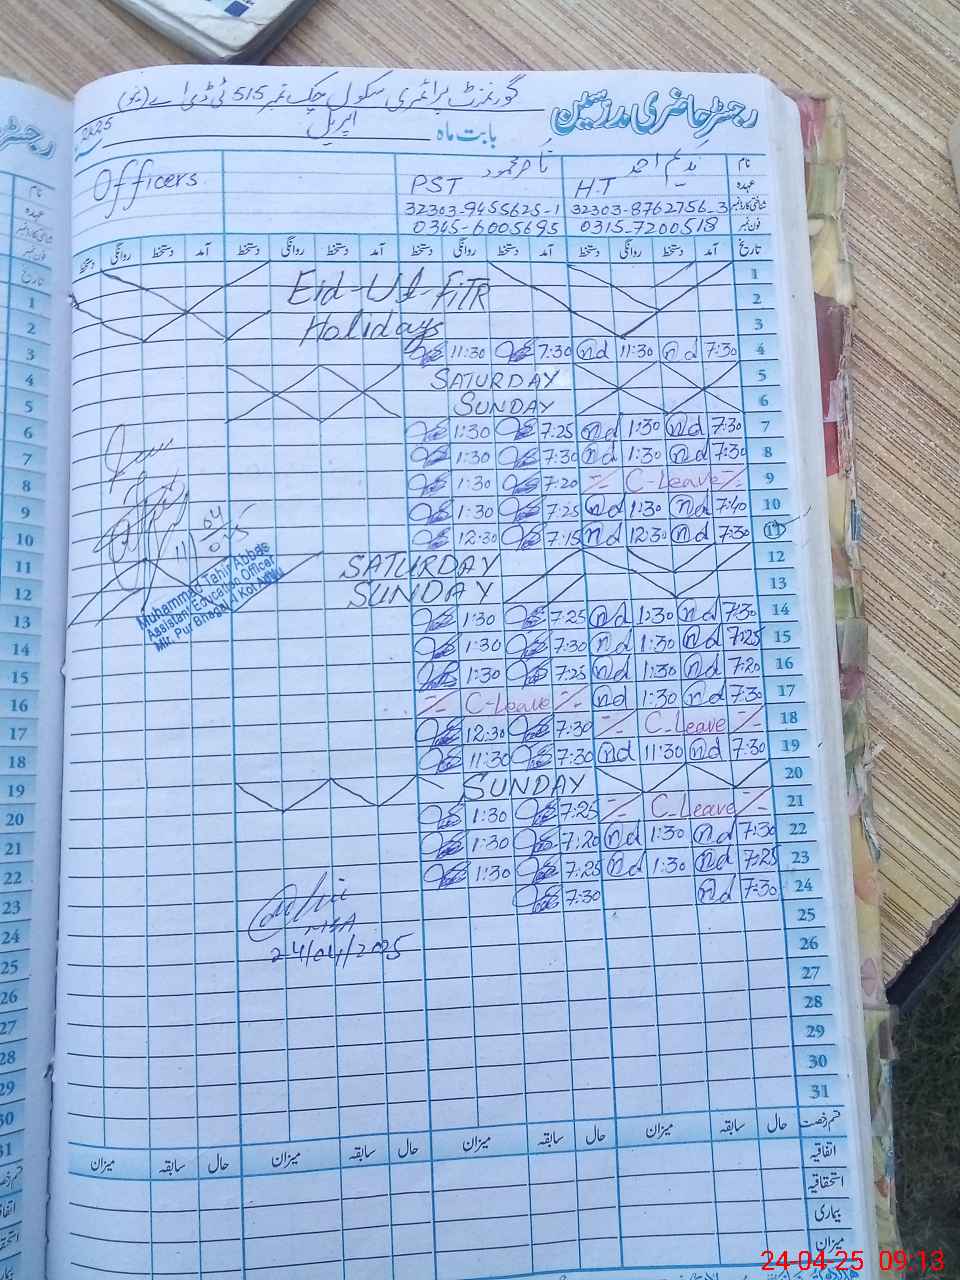 گورنمنٹ پرائمری سکول چک نمبر 515 ٹی ڈی اے (یو)
رجسٹر حاضری مدرسین
بابت ماہ اپریل 2025
نام ندیم احمد ناصر محمود Officers
عہدہ H.T PST
شناختی کارڈ نمبر 32303-8762756-3 32303-9455625-1
فون نمبر 0315-7200518 0345-6005695
تاریخ آمد دستخط روانگی دستخط آمد دستخط روانگی دستخط آمد دستخط روانگی دستخط
1 Eid-Ul-FiTR
2
3 Holidays
4 7:30 nd 11:30 nd 7:30 11:30
5 SATURDAY
6 SUNDAY
7 7:30 nd 1:30 nd 7:25 1:30
8 7:30 nd 1:30 nd 7:30 1:30
9 C-Leave 7:20 1:30
10 7:40 nd 1:30 nd 7:25 1:30
11 7:30 nd 12:30 nd 7:15 12:30
12 SATURDAY
13 SUNDAY
14 7:30 nd 1:30 nd 7:25 1:30
15 7:25 nd 1:30 nd 7:30 1:30
16 7:20 nd 1:30 nd 7:25 1:30
17 7:30 nd 1:30 nd C-Leave
18 C-Leave 7:30 12:30
19 7:30 nd 11:30 nd 7:30 11:30
20 SUNDAY
21 C-Leave 7:25 1:30
22 7:30 nd 1:30 nd 7:20 1:30
23 7:25 nd 1:30 nd 7:25 1:30
24 7:30 nd 7:30
25
26
27
28
29
30
31
11/04
Muhammad Tahir Abbas
Assistant Education Officer
MEA
24/04/2025
قسم رخصت حال سابقہ میزان حال سابقہ میزان حال سابقہ میزان حال سابقہ میزان
اتفاقیہ
استحقاقیہ
بیماری
میزان
24-04-25 09:13